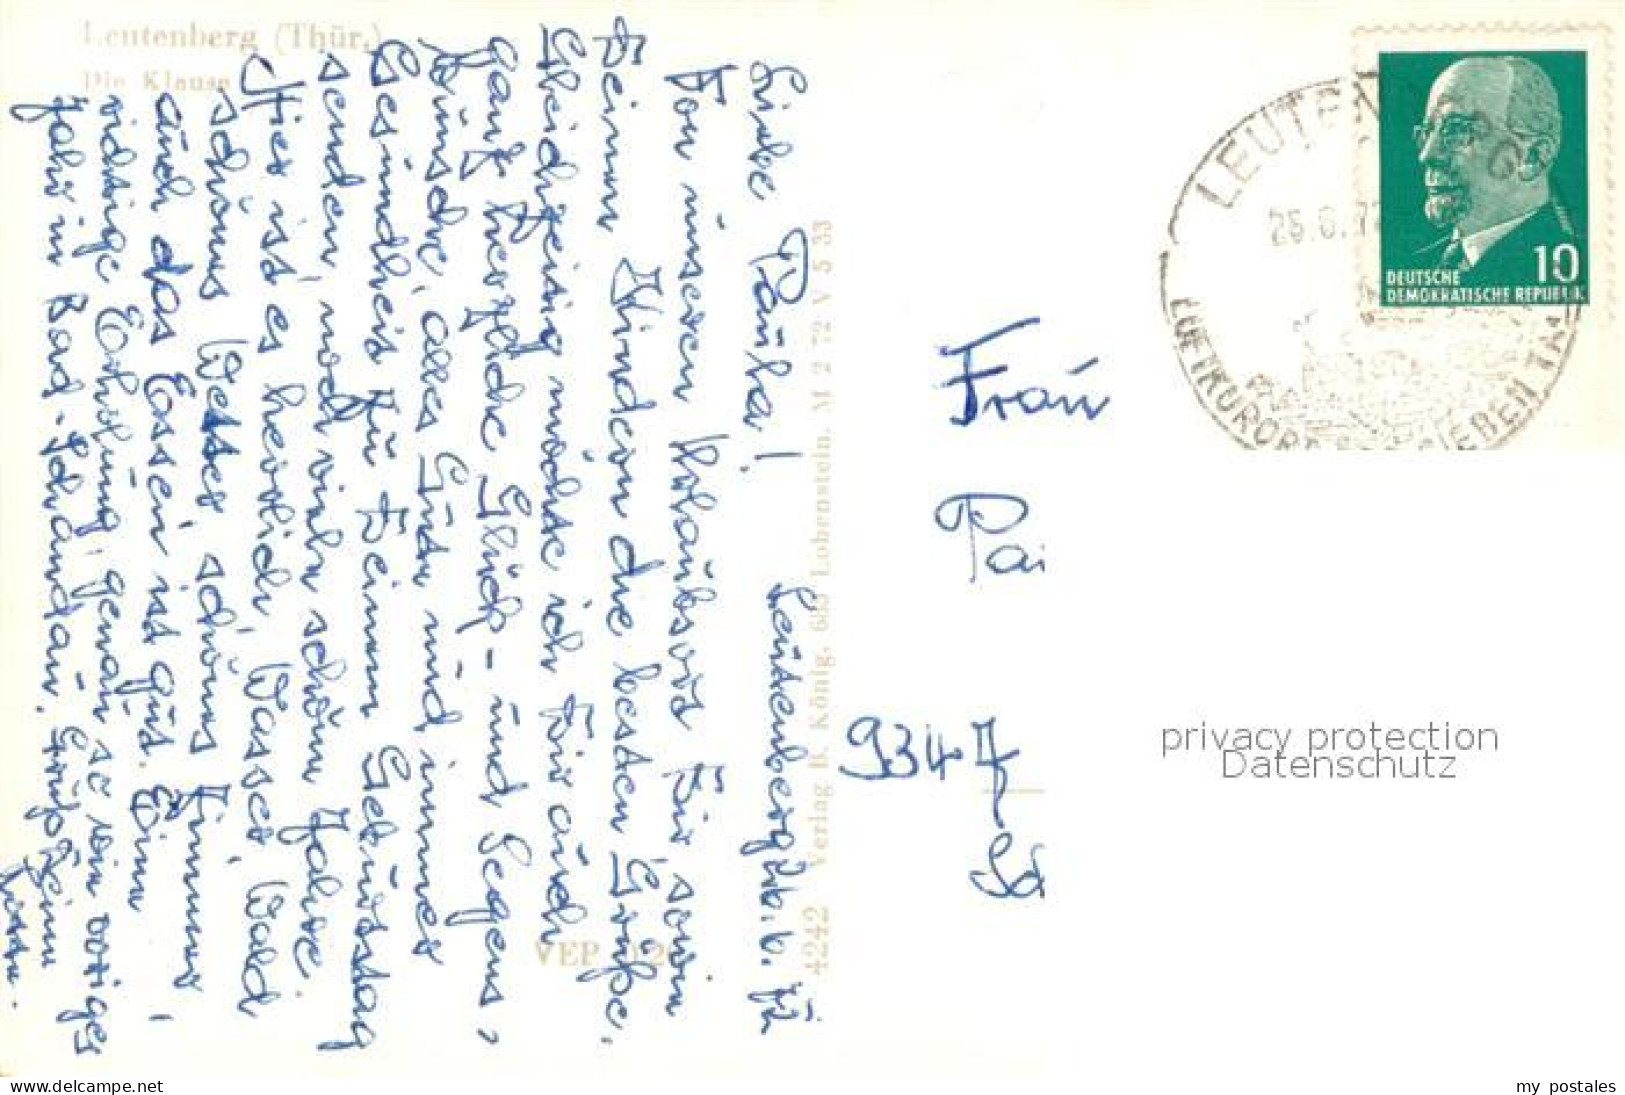 Leutenberg (Thür.)
Die Klause
Liebe Paula! Leutenberg, d. b. Jü
Von unserem Urlaubsort Dir sowie
Deinen Kindern die besten Grüße.
Gleichzeitig möchte ich Dir auch
ganz herzliche Glück- und Segens,
wünsche, alles Gute und immer
Gesundheit zu Deinem Geburtstag
senden, noch viele schöne Jahre.
Hier ist es herrlich, Wasser, Wald
schönes Wetter, schönes Zimmer,
auch das Essen ist gut. Eine
richtige Erholung, genau so wie voriges
Jahr in Bad-Schandau. Grüße Deine
VEP
4242 Verlag B. König, 685 Lobenstein, M 2 72 V 5 33
LEUTENBERG
LUFTKURORT SIEBEN TÄL
DEUTSCHE
DEMOKRATISCHE REPUBLIK
10
Frau
Pau
9347
privacy protection
Datenschutz
www.delcampe.net
my postales